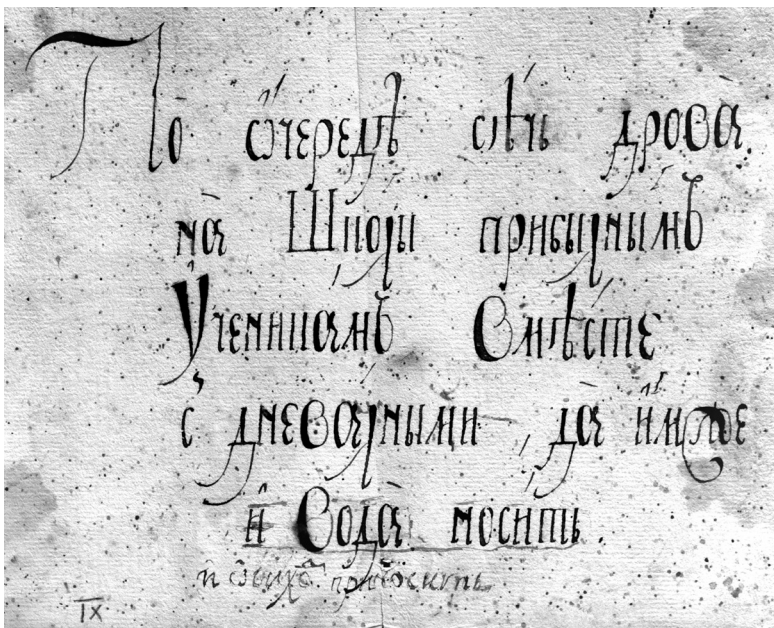 По ѻчередѣ сѣчь дрова
на Школы прибылнымъ
Ученикамъ Вмѣсте
с дневалными, да имже
и Вода носить.
и приносить
IX